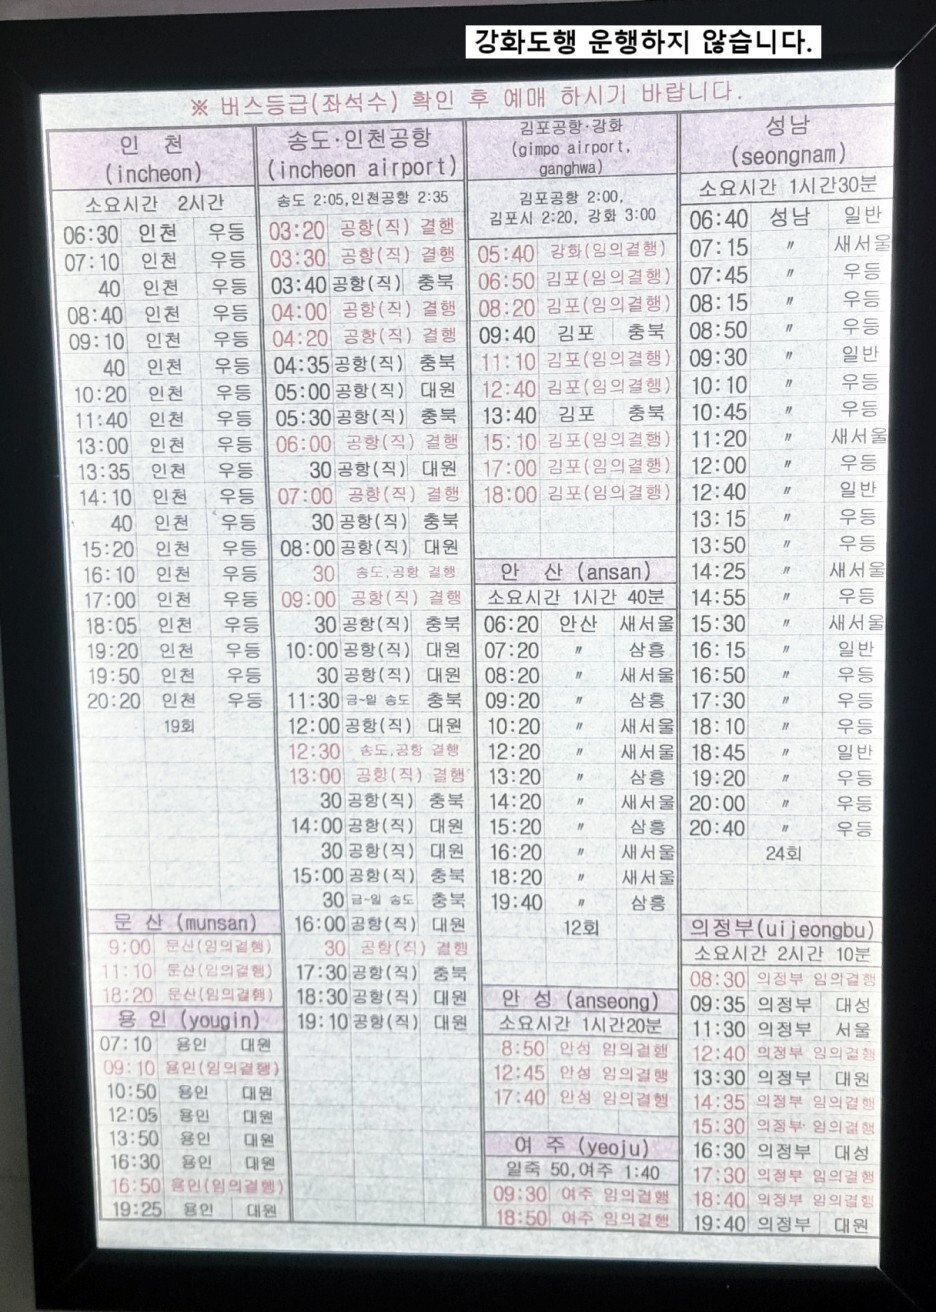 강화도행 운행하지 않습니다.
※ 버스등급(좌석수) 확인 후 예매 하시기 바랍니다.
인 천
(incheon)
소요시간 2시간
06:30 인천 우등
07:10 인천 우등
40 인천 우등
08:40 인천 우등
09:10 인천 우등
40 인천 우등
10:20 인천 우등
11:40 인천 우등
13:00 인천 우등
13:35 인천 우등
14:10 인천 우등
40 인천 우등
15:20 인천 우등
16:10 인천 우등
17:00 인천 우등
18:05 인천 우등
19:20 인천 우등
19:50 인천 우등
20:20 인천 우등
19회
문 산 (munsan)
9:00 문산(임의결행)
11:10 문산(임의결행)
18:20 문산(임의결행)
용 인 (yougin)
07:10 용인 대원
09:10 용인(임의결행)
10:50 용인 대원
12:05 용인 대원
13:50 용인 대원
16:30 용인 대원
16:50 용인(임의결행)
19:25 용인 대원
송도·인천공항
(incheon airport)
송도 2:05,인천공항 2:35
03:20 공항(직) 결행
03:30 공항(직) 결행
03:40 공항(직) 충북
04:00 공항(직) 결행
04:20 공항(직) 결행
04:35 공항(직) 충북
05:00 공항(직) 대원
05:30 공항(직) 충북
06:00 공항(직) 결행
30 공항(직) 대원
07:00 공항(직) 결행
30 공항(직) 충북
08:00 공항(직) 대원
30 송도,공항 결행
09:00 공항(직) 결행
30 공항(직) 충북
10:00 공항(직) 대원
30 공항(직) 대원
11:30 금~일 송도 충북
12:00 공항(직) 대원
12:30 송도,공항 결행
13:00 공항(직) 결행
30 공항(직) 충북
14:00 공항(직) 대원
30 공항(직) 대원
15:00 공항(직) 충북
30 금~일 송도 충북
16:00 공항(직) 대원
30 공항(직) 결행
17:30 공항(직) 충북
18:30 공항(직) 대원
19:10 공항(직) 대원
김포공항·강화
(gimpo airport,
ganghwa)
김포공항 2:00,
김포시 2:20, 강화 3:00
05:40 강화(임의결행)
06:50 김포(임의결행)
08:20 김포(임의결행)
09:40 김포 충북
11:10 김포(임의결행)
12:40 김포(임의결행)
13:40 김포 충북
15:10 김포(임의결행)
17:00 김포(임의결행)
18:00 김포(임의결행)
안 산 (ansan)
소요시간 1시간 40분
06:20 안산 새서울
07:20 〃 삼흥
08:20 〃 새서울
09:20 〃 삼흥
10:20 〃 새서울
12:20 〃 새서울
13:20 〃 삼흥
14:20 〃 새서울
15:20 〃 삼흥
16:20 〃 새서울
18:20 〃 새서울
19:40 〃 삼흥
12회
안 성 (anseong)
소요시간 1시간20분
8:50 안성 임의결행
12:45 안성 임의결행
17:40 안성 임의결행
여 주 (yeoju)
일죽 50,여주 1:40
09:30 여주 임의결행
18:50 여주 임의결행
성남
(seongnam)
소요시간 1시간30분
06:40 성남 일반
07:15 〃 새서울
07:45 〃 우등
08:15 〃 우등
08:50 〃 우등
09:30 〃 일반
10:10 〃 우등
10:45 〃 우등
11:20 〃 새서울
12:00 〃 우등
12:40 〃 일반
13:15 〃 우등
13:50 〃 우등
14:25 〃 새서울
14:55 〃 우등
15:30 〃 새서울
16:15 〃 일반
16:50 〃 우등
17:30 〃 우등
18:10 〃 우등
18:45 〃 일반
19:20 〃 우등
20:00 〃 우등
20:40 〃 우등
24회
의정부(uijeongbu)
소요시간 2시간 10분
08:30 의정부 임의결행
09:35 의정부 대성
11:30 의정부 서울
12:40 의정부 임의결행
13:30 의정부 대원
14:35 의정부 임의결행
15:30 의정부 임의결행
16:30 의정부 대성
17:30 의정부 임의결행
18:40 의정부 임의결행
19:40 의정부 대원